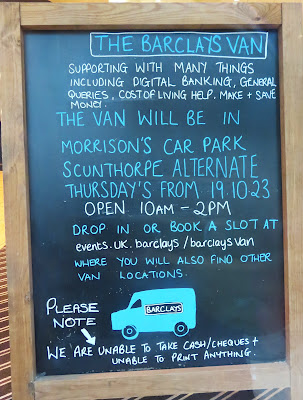 THE BARCLAYS VAN
SUPPORTING WITH MANY THINGS
INCLUDING DIGITAL BANKING, GENERAL
QUERIES, COST OF LIVING HELP. MAKE + SAVE
MONEY.
THE VAN WILL BE IN
MORRISON'S CAR PARK
SCUNTHORPE ALTERNATE
THURSDAY'S FROM 19.10.23
OPEN 10AM - 2PM
DROP IN OR BOOK A SLOT AT
events.uk.barclays/barclaysvan
WHERE YOU WILL ALSO FIND OTHER
VAN LOCATIONS.
PLEASE
NOTE
BARCLAYS
WE ARE UNABLE TO TAKE CASH/CHEQUES +
UNABLE TO PRINT ANYTHING.